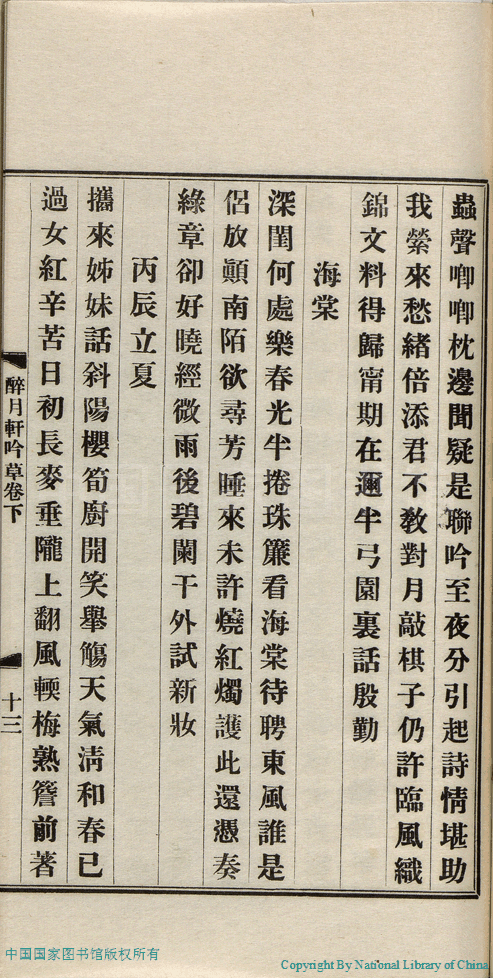 蟲聲唧唧枕邊聞疑是聯吟至夜分引起詩情堪助
我縈來愁緒倍添君不敎對月敲棋子仍許臨風織
錦文料得歸甯期在邇半弓園裏話殷勤
海棠
深閨何處樂春光半捲珠簾看海棠待聘東風誰是
侶放顚南陌欲尋芳睡來未許燒紅燭護此還憑奏
綠章卻好曉經微雨後碧闌干外試新妝
丙辰立夏
攜來姊妹話斜陽櫻筍廚開笑舉觴天氣淸和春已
過女紅辛苦日初長麥垂隴上翻風輭梅熟簷前著
醉月軒吟草卷下
十三
中国国家图书馆版权所有
Copyright By National Library of China